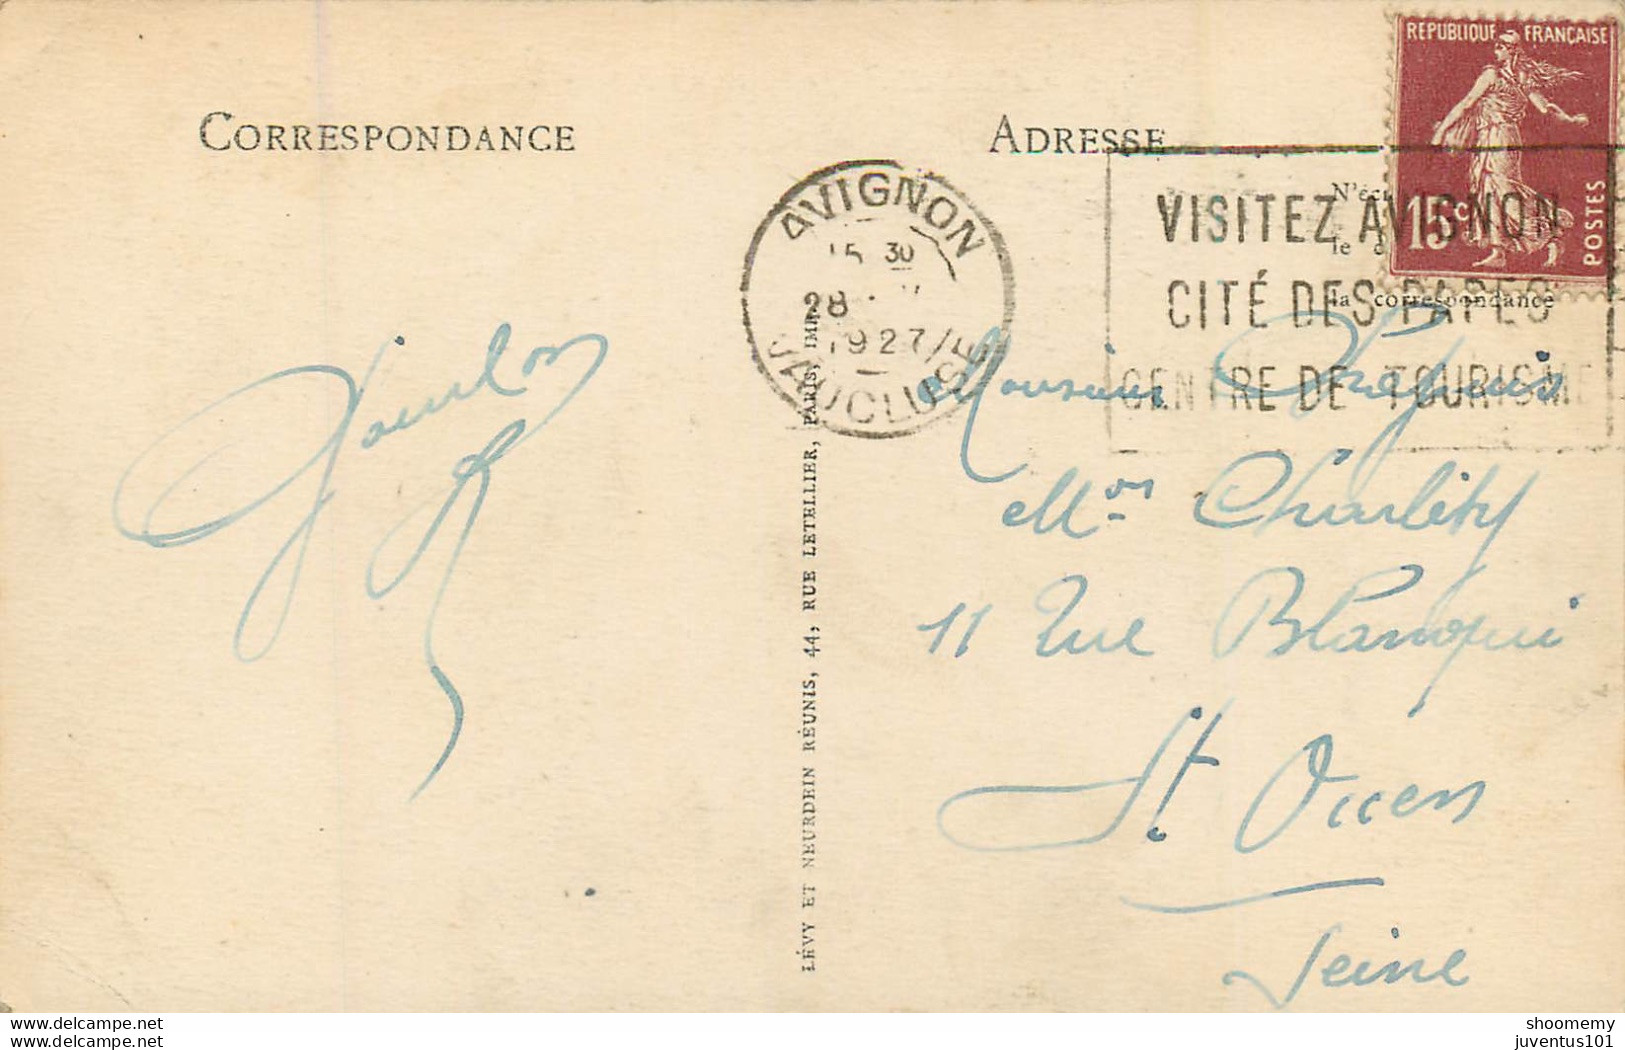 CORRESPONDANCE
ADRESSE
RÉPUBLIQUE FRANÇAISE
15c
POSTES
AVIGNON
15 30
28
1927
VAUCLUSE
VISITEZ AVIGNON
CITÉ DES PAPES
CENTRE DE TOURISME
la correspondance
LÉVY ET NEURDEIN RÉUNIS, 44, RUE LETELLIER, PARIS, IMP.
Monsieur
Mon Charlety
11 Rue Blanqui
St Ouen
Seine
www.delcampe.net
shoomemy
juventus101